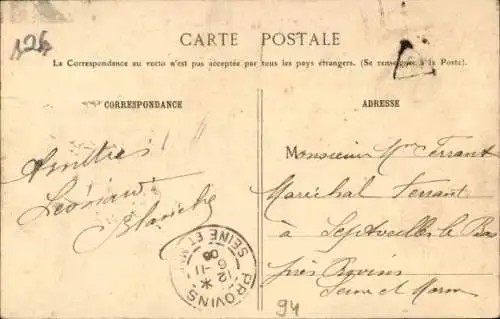 126
CARTE POSTALE
La Correspondance au recto n'est pas acceptée par tous les pays étrangers. (Se renseigner à la Poste).
CORRESPONDANCE
ADRESSE
Amitiés
Léonard
Blanche
Monsieur Mme Ferrant
Maréchal Ferrant
à Septveilles le Bas
près Provins
Seine et Marne
PROVINS
SEINE ET
12
6-11
06
94